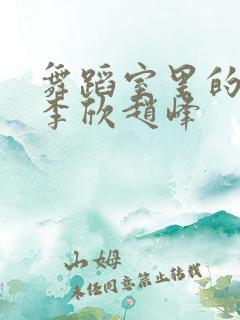 舞蹈室里的
李欣赵峰
山姆
未经同意禁止转载